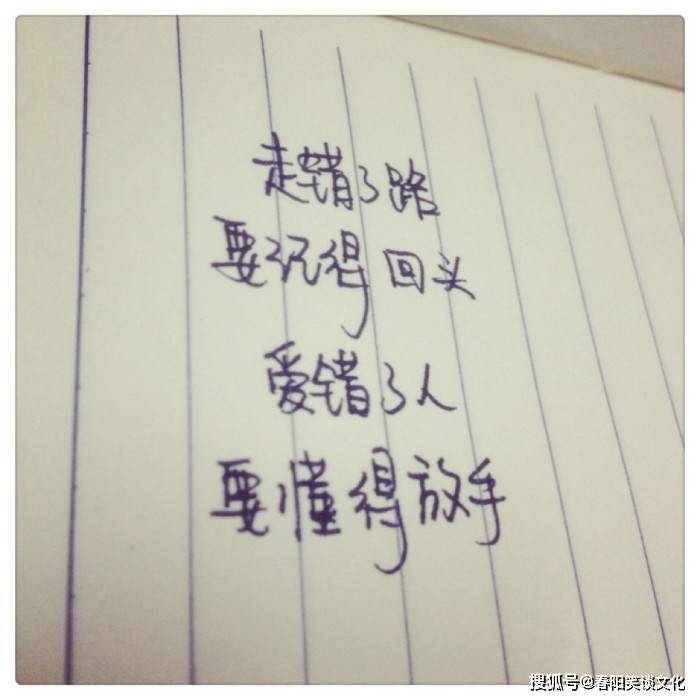 走错了路
要记得回头
爱错了人
要懂得放手
搜狐号@春阳笑谈文化